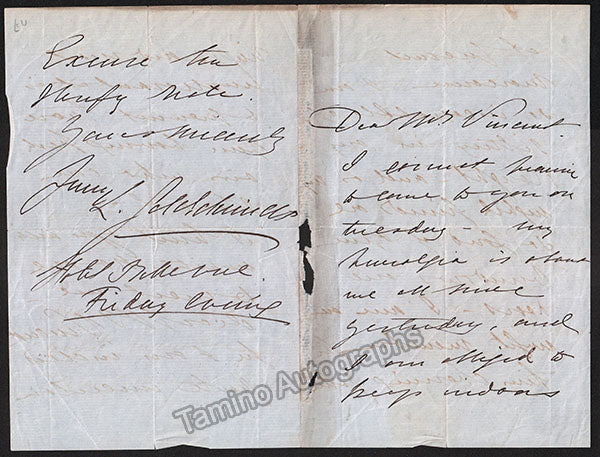 Dear Mrs Vincent.
I cannot promise
to come to you on
tuesday - my
Neuralgia is about
me all since
yesterday, and
I am obliged to
keep indoors
Excuse this
hasty note.
Yours sincerely
Jenny
L. Goldschmidt
Hotel Bellevue.
Friday evening
Tamino Autographs